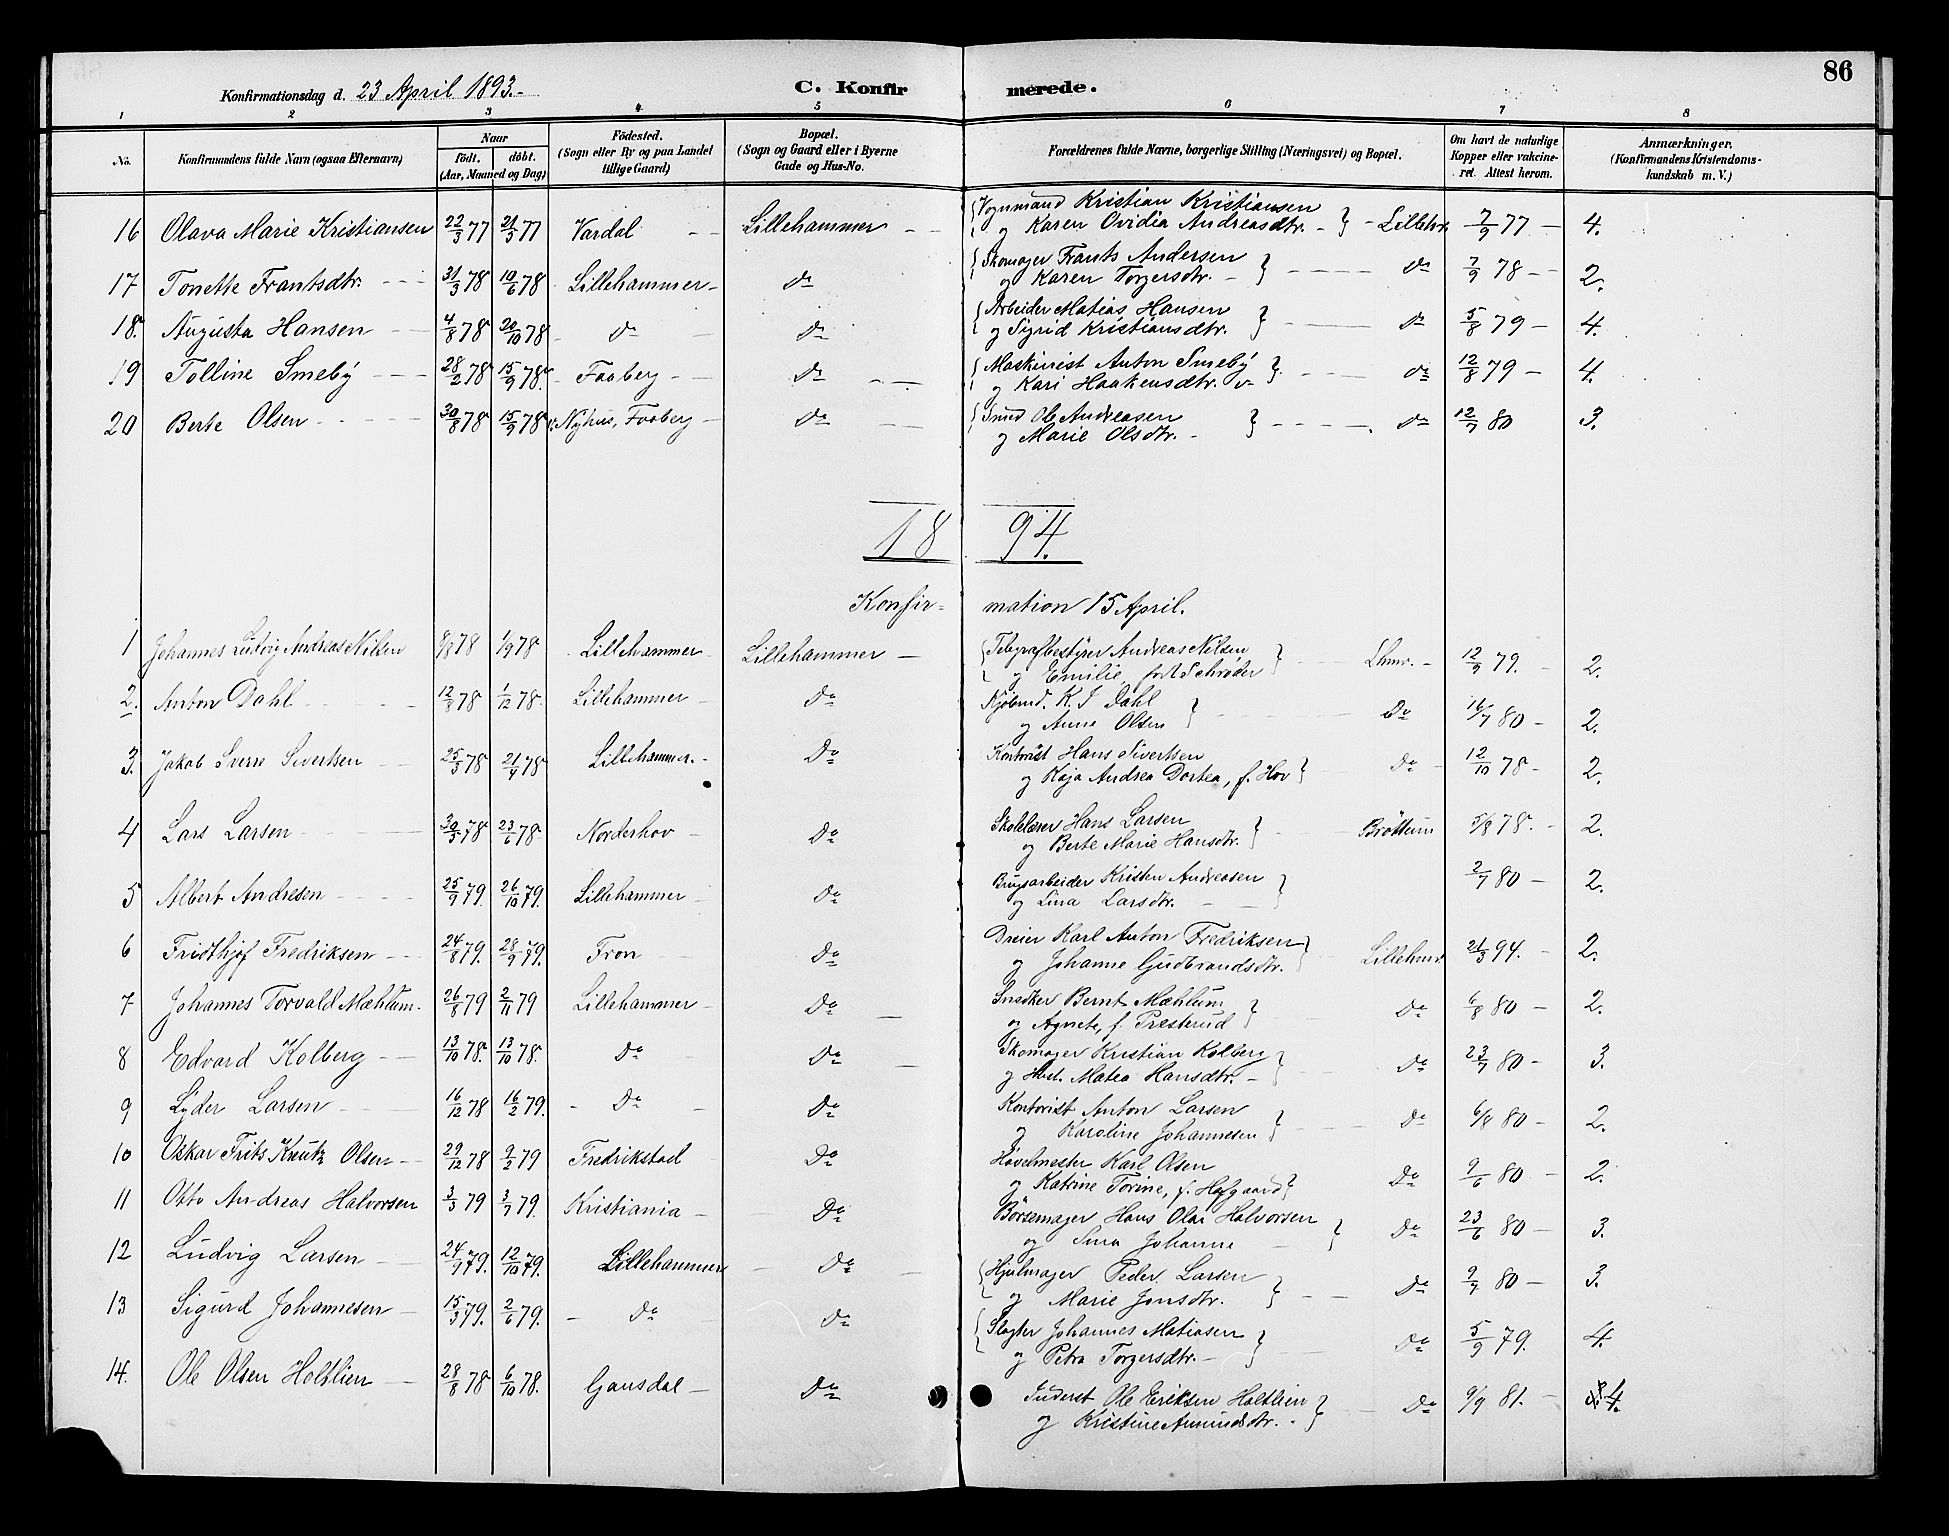 86
Konfirmationsdag d. 23 April 1893.- C. Konfirmerede.
1 2 3 4 5 6 7 8
No. Konfirmandens fulde Navn (ogsaa Efternavn) Naar født. døbt. (Aar, Maaned og Dag) Födested. (Sogn eller By og paa Landet tillige Gaard) Bopæl. (Sogn og Gaard eller i Byerne Gade og Hus-No. Forældrenes fulde Navne, borgerlige Stilling (Næringsvei) og Bopæl. Om havt de naturlige Kopper eller vakcineret. Attest herom. Anmærkninger. (Konfirmandens Kristendomskundskab m. V.)
16 Olava Marie Kristiansen 22/3 77 21/5 77 Vardal Lillehammer Vognmand Kristian Kristiansen
og Karen Ovidia Andreasdtr. - Lillehr. 7/9 77 - 4.
17 Tonette Frantsdtr. 31/3 78 10/6 78 Lillehammer Do Skomager Frants Andersen
og Karen Torgersdtr. - Do 7/9 78 - 2.
18. Augusta Hansen 4/8 78 20/10 78 Do Do Arbeider Matias Hansen
og Sigrid Kristiansdtr. Do 5/8 79 - 4.
19 Tolline Smeby 28/2 78 15/9 78. Faaberg Do Maskinist Anton Smeby
og Kari Haakensdtr. Do 12/8 79 - 4.
20 Berte Olsen 30/8 78 15/9 78 Nyhus, Faaberg Do Smed Ole Andreasen
og Marie Olsdtr. - Do 12/7 80 3.
1894.
Konfirmation 15 April.
1 Johannes Ludvig Andreas Nilsen 8/8 78 1/9 78 Lillehammer Lillehammer Telegrafbestyrer Andreas Nilsen
og Emilie, født Schrøder Lhmr. - 12/9 79. 2.
2. Anton Dahl 12/8 78 1/12 78. Lillehammer Do Kjøbmd. K. J Dahl
og Anne Olsen Do 16/7 80 - 2.
3. Jakob Sverre Sivertsen 25/3 78 21/4 78 Lillehammer. Do Kontorist Hans Sivertsen
og Kaja Andrea Dortea, f. Hov Do 12/10 78 - 2.
4 Lars Larsen 30/3 78 23/6 78 Norderhov Do Skolelærer Hans Larsen
og Berte Marie Hansdtr. Brøttum 5/8 78. - 2.
5 Albert Andresen 25/9 79. 26/10 79. Lillehammer Do Brugsarbeider Kristen Andreasen
og Lina Larsdtr. 2/7 80 - 2.
6 Fridthjof Fredriksen 24/8 79. 28/9 79. Fron Do Dreier Karl Anton Fredriksen
og Johanne Gudbrandsdtr. Lillehmr 21/3 94. - 2.
7 Johannes Torvald Mæhlum. 26/8 79 2/11 79 Lillehammer Do Snedker Bernt Mæhlum
og Agnete, f. Presterud Do 6/8 80 - 2.
8 Edvard Kolberg 13/10 78. 13/10 78. Do Do Skomager Kristian Kolberg
og Hust. Matea Hansdtr. - Do 23/7 80 - 3.
9 Lyder Larsen 16/12 78 16/2 79. Do Do Kontorist Anton Larsen
og Karoline Johannesen Do 6/8 80 - 2.
10 Oskar Frits Kautz Olsen 29/12 78 9/2 79 Fredrikstad Do Høvelmester Karl Olsen
og Katrine Torine, f. Hofgaard Do 9/6 80 - 2.
11 Otto Andreas Halvorsen 3/3 79 3/7 79. Kristiania Do Børsemager Hans Olai Halvorsen
og Sina Johanne Do 23/6 80 - 3.
12 Ludvig Larsen 24/9 79. 12/10 79. Lillehammer Do Hjulmager Peder Larsen
og Marie Jonsdtr. Do 9/7 80 - 3.
13 Sigurd Johannesen 15/3 79. 2/6 79. Do Do Slagter Johannes Matiasen
og Petra Torgersdtr. Do 5/9 79. 4.
14. Ole Olsen Holtlien 28/8 78 6/10 78. Gausdal Do Inderst Ole Eriksen Holtlien
og Kristine Amundsdtr. Do 9/9 81. - 4.